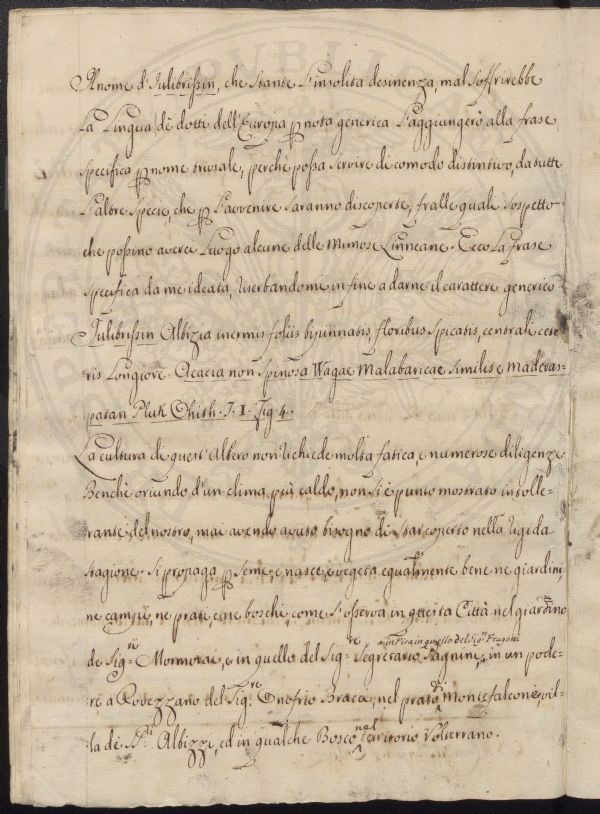 Il nome d'Iulibrissin, che stante l'insolita desinenza, mal soffrirebbe
la lingua de dotti dell'Europa p nota generica l'aggiungerò alla frase
specifica p nome triviale, perchè possa servire di comodo distintivo, da tutte
l'altre specie, che p l'avvenire saranno discoperte, fralle quali sospetto
che possino avere luogo alcune delle Mimose Linneane. Ecco la frase
specifica da me ideata, riserbandomi in fine a darne il carattere generico
Julibrissin Albizia inermis foliis bipinnatis, floribus spicatis, centrale cete-
ris longiore. Acacia non spinosa Wagae Malabaricae similis e Maderas-
patan Pluk Phith. T. I. Fig. 4.
La cultura di quest'albero non richiede molta fatica, e numerose diligenze
Benchè oriundo d'un clima più caldo, non si è punto mostrato intolle-
rante del nostro, mai avendo avuto bisogno di star coperto nella rigida
stagione. Si propaga p seme, e nasce, e vegeta egualmente bene ne giardini
ne campi, ne prati, e ne boschi, come s'osserva in questa Città nel giardino
de Sigri Mormorai, e in quello del Sigre Segretario Pagnini, in un pode-
in Pisa in quello del Sigr Frugoni
re a Rovezzano del Sigre Onofrio Bracci, nel prato di Montefalconi, vil-
la de SSri Albizzi, ed in qualche Bosco nel territorio Volterrano.